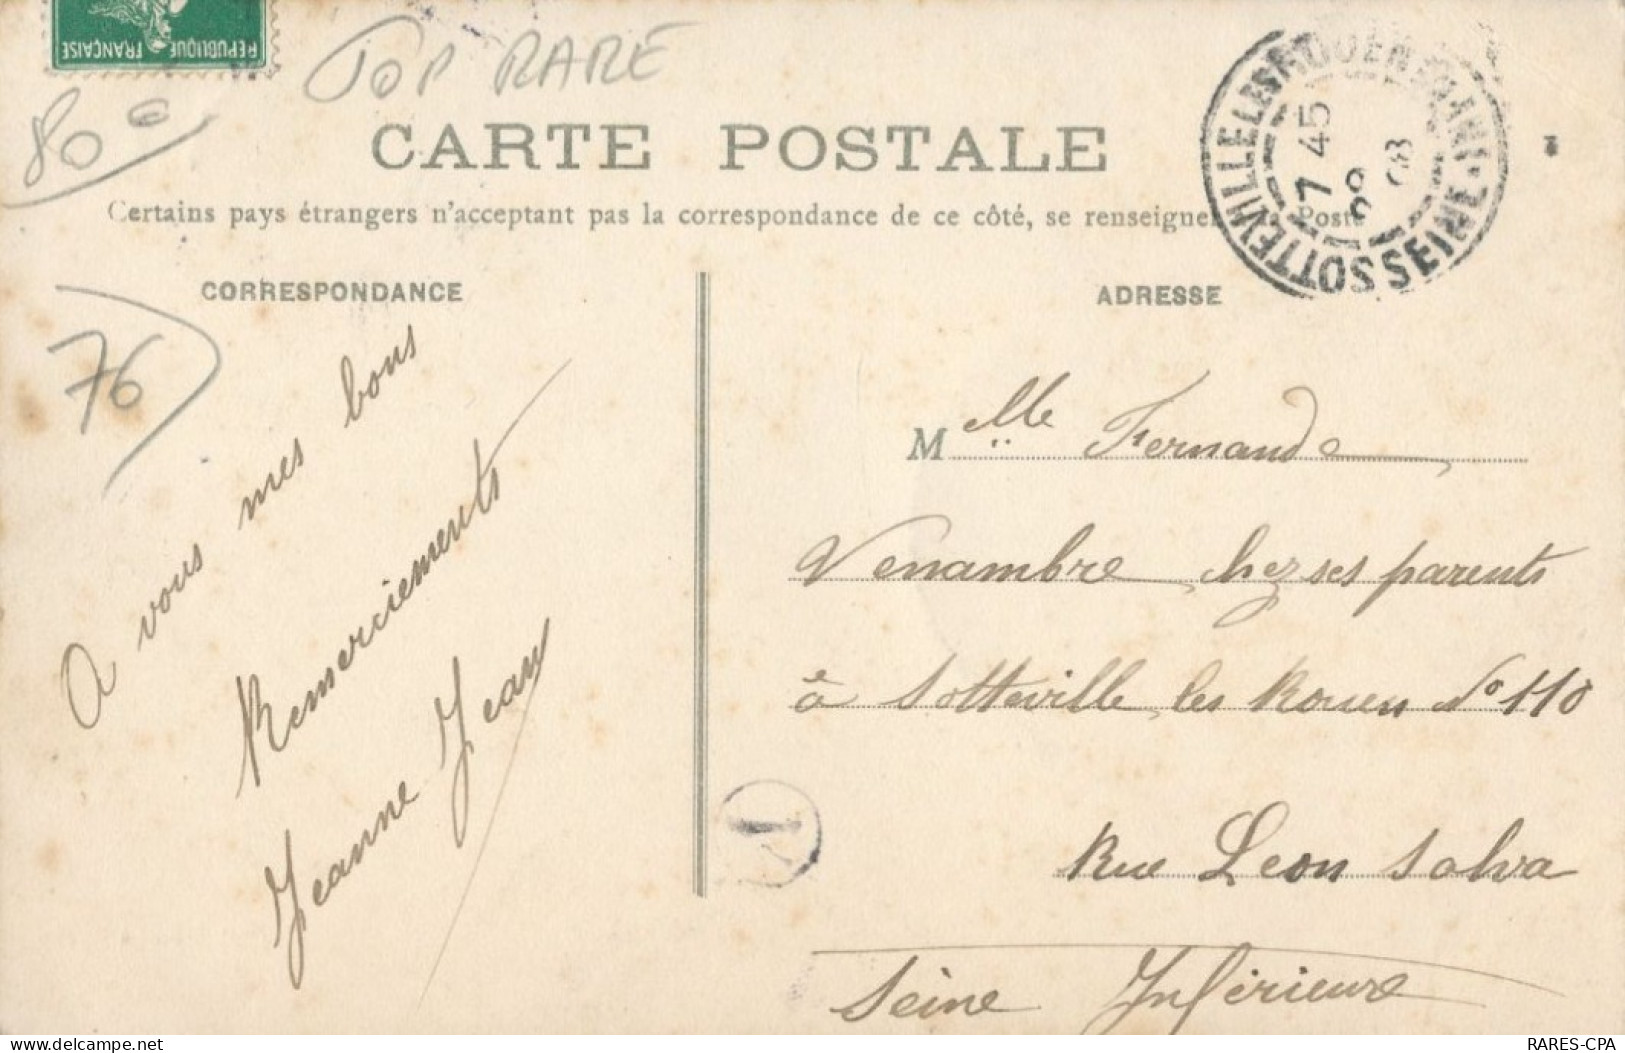 REPUBLIQUE FRANÇAISE
TOP RARE
80 €
CARTE POSTALE
Certains pays étrangers n'acceptant pas la correspondance de ce côté, se renseigner à la Poste
SOTTEVILLE LES ROUEN
SEINE INFRE
7 45
8 8
08
CORRESPONDANCE
ADRESSE
76
A vous mes bons
Remerciements
Jeanne Jean
Mlle Fernande
Venambre chez ses parents
à Sotteville les Rouen No 110
Rue Leon Salva
Seine Inférieure
1
RARES-CPA